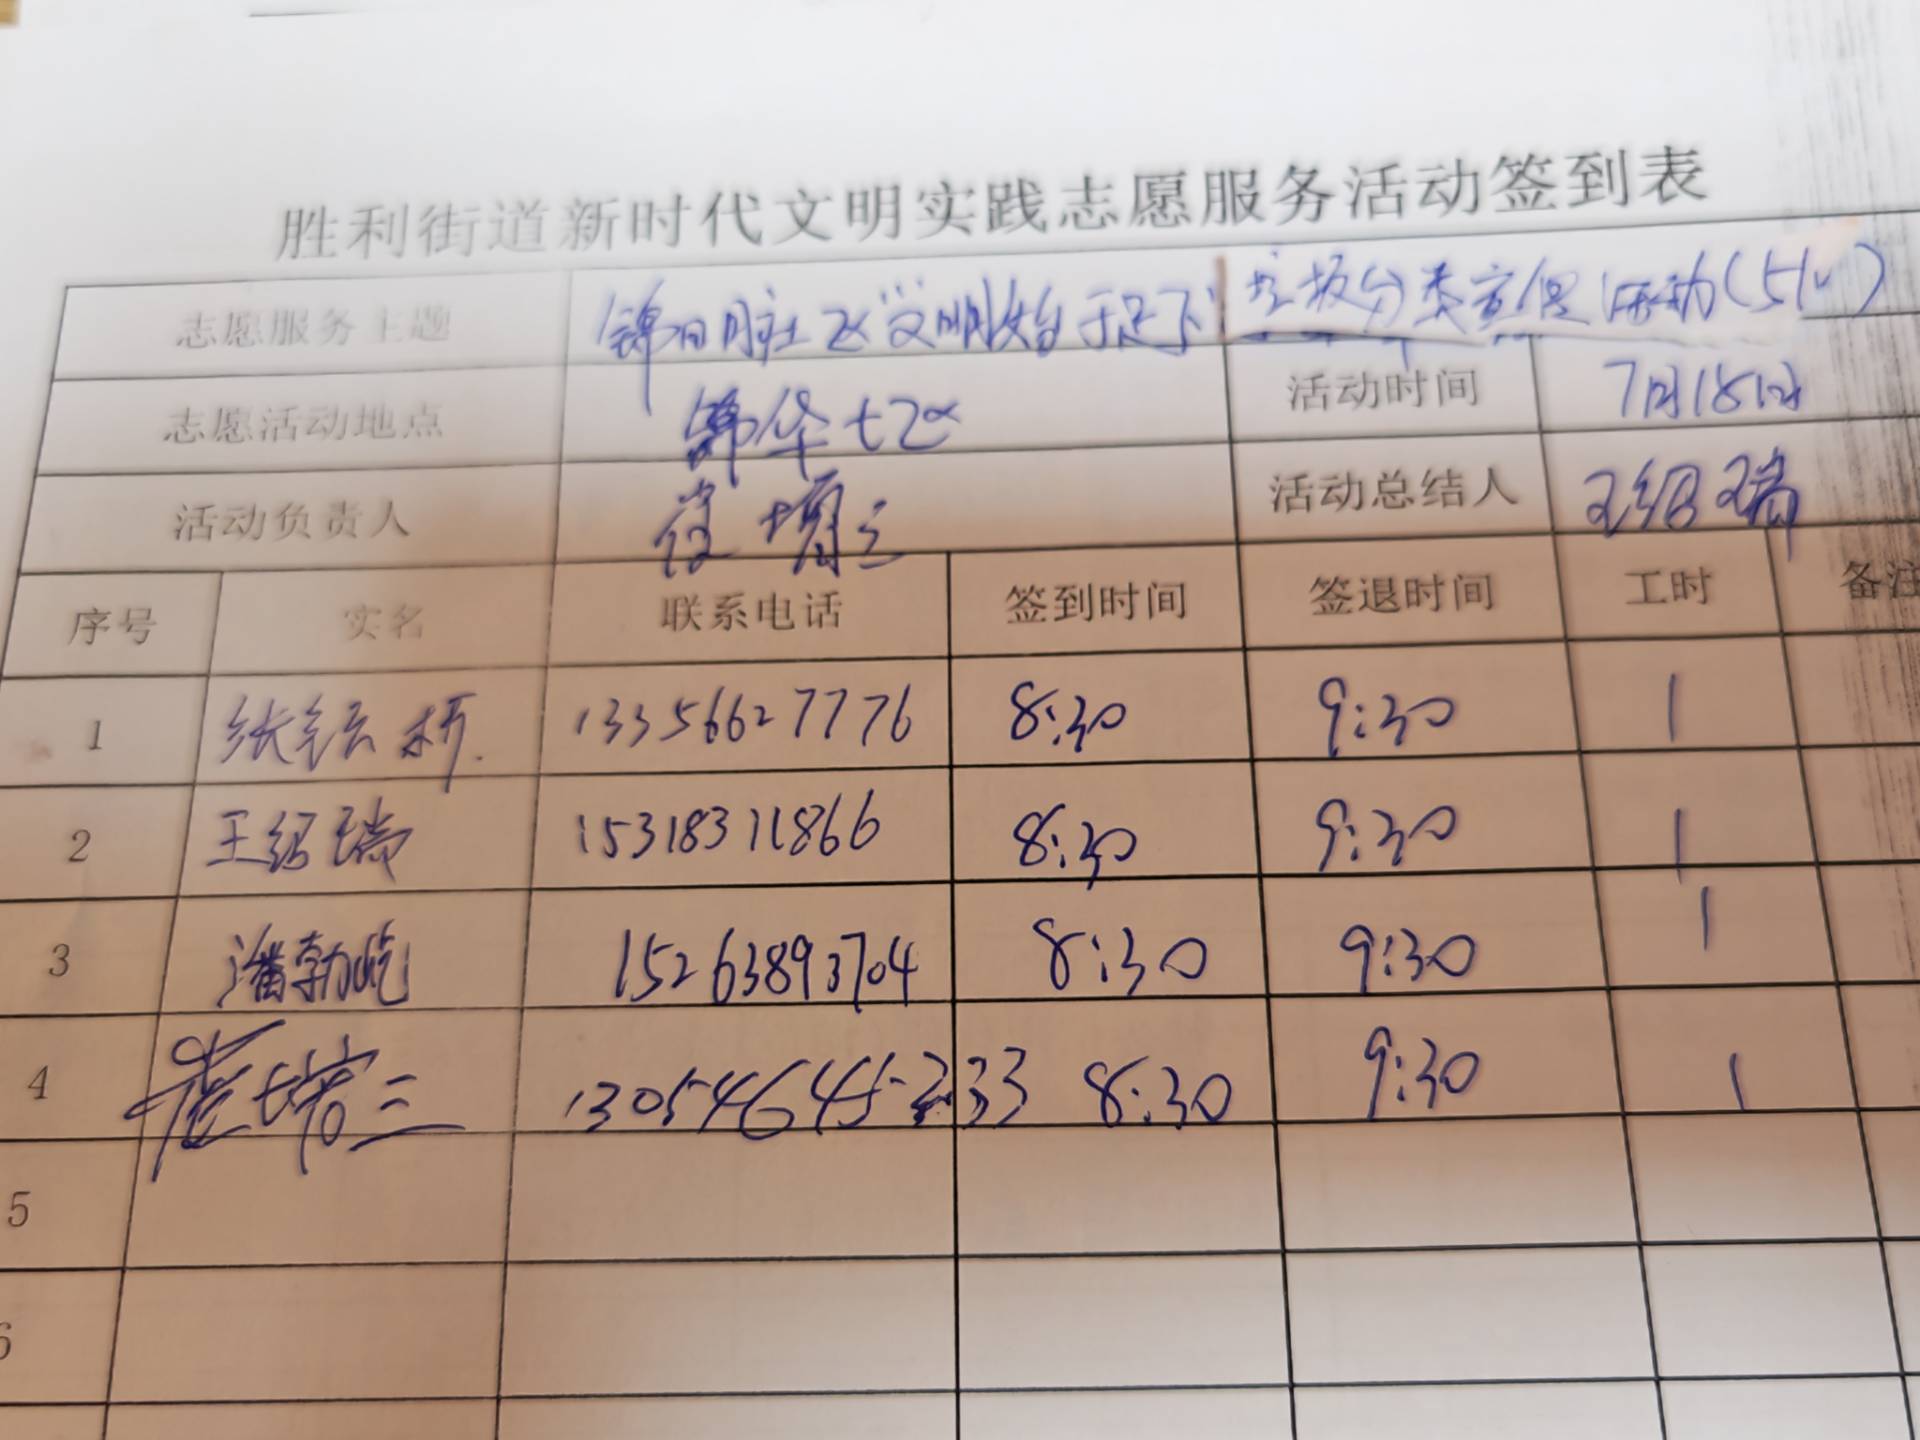 胜利街道新时代文明实践志愿服务活动签到表
志愿服务主题 文明始于足下 垃圾分类宣传活动(
志愿活动地点 锦华 活动时间 7月18日
活动负责人 活动总结人 王绍瑞
序号 实名 联系电话 签到时间 签退时间 工时 备注
1 张 13356627776 8:30 9:30 1
2 王绍瑞 15318311866 8:30 9:30 1
3 潘勃屹 15263893704 8:30 9:30 1
4 13054645233 8:30 9:30 1
5
6